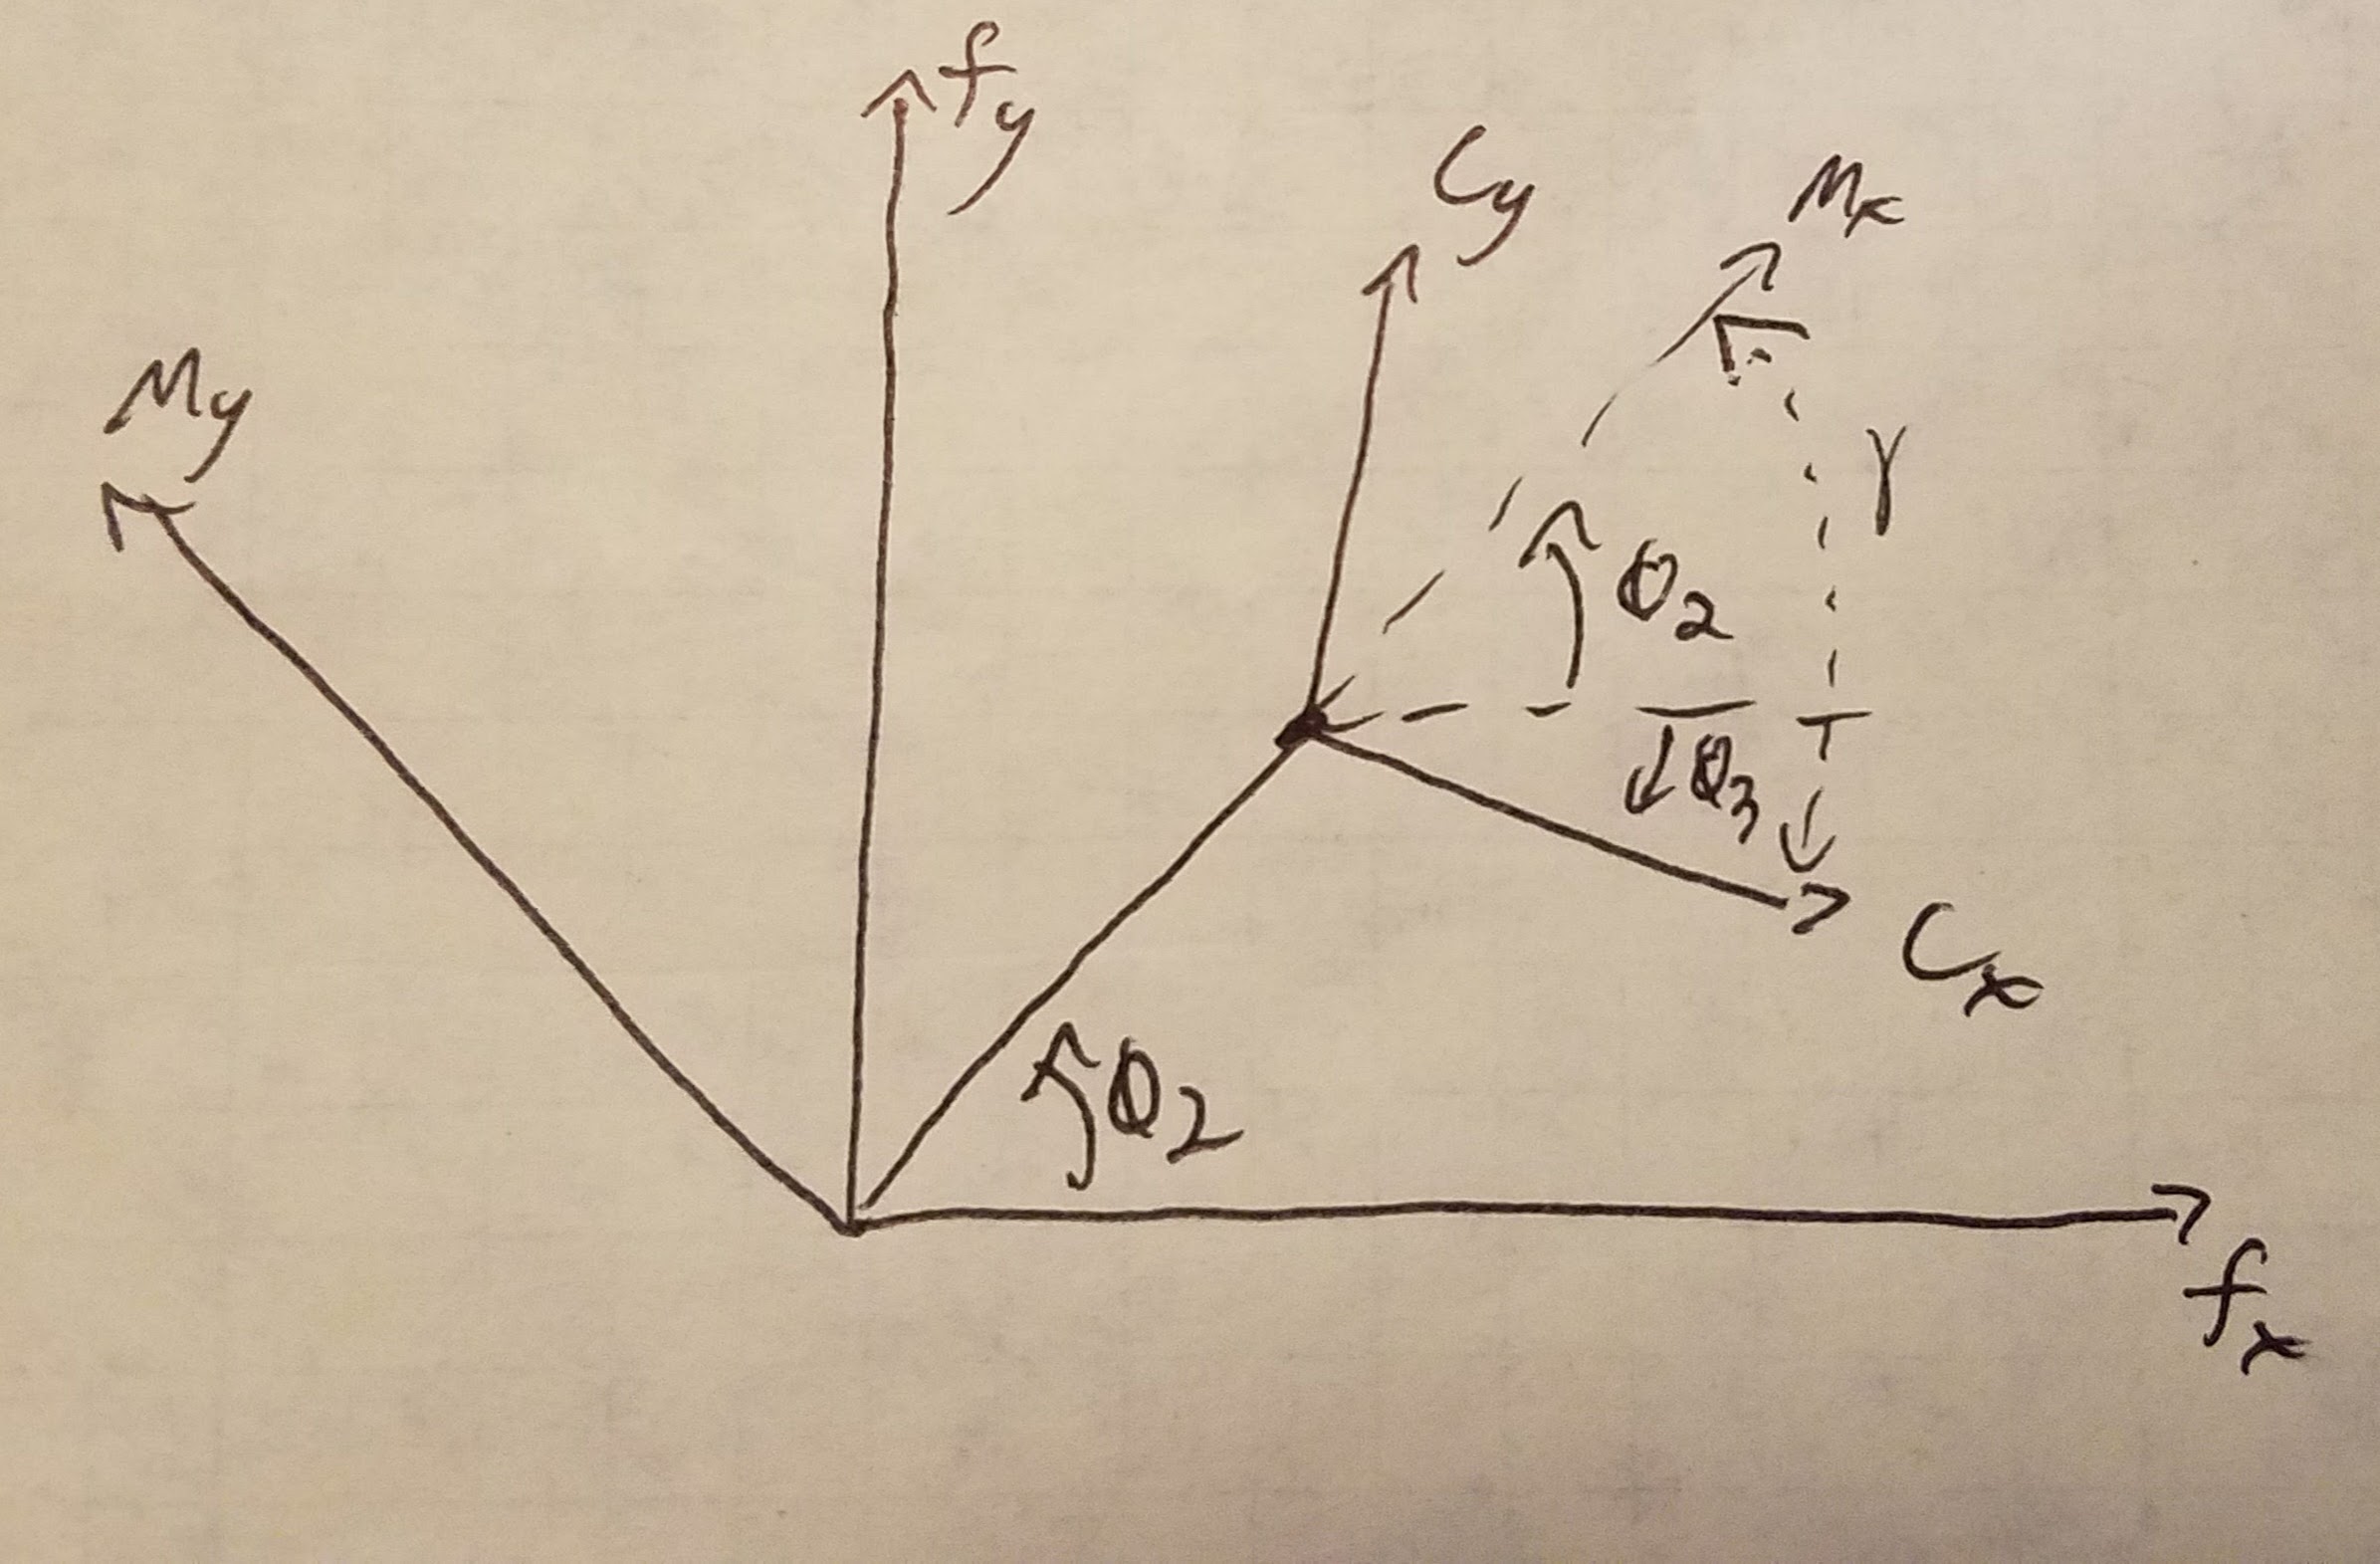 fy
Cy
Mx
My
γ
θ2
θ3
Cx
θ2
fx